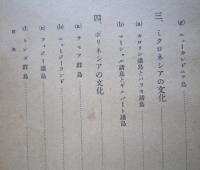 (g) ニューカレドニア島
三、ミクロネシアの文化
(a) カロリン諸島とパラオ諸島
(b) マーシャル諸島とギルバート諸島
四、ポリネシアの文化
(a) サモア群島
(b) ニュージーランド
(c) フィジー諸島
(d) トンガ群島
目次